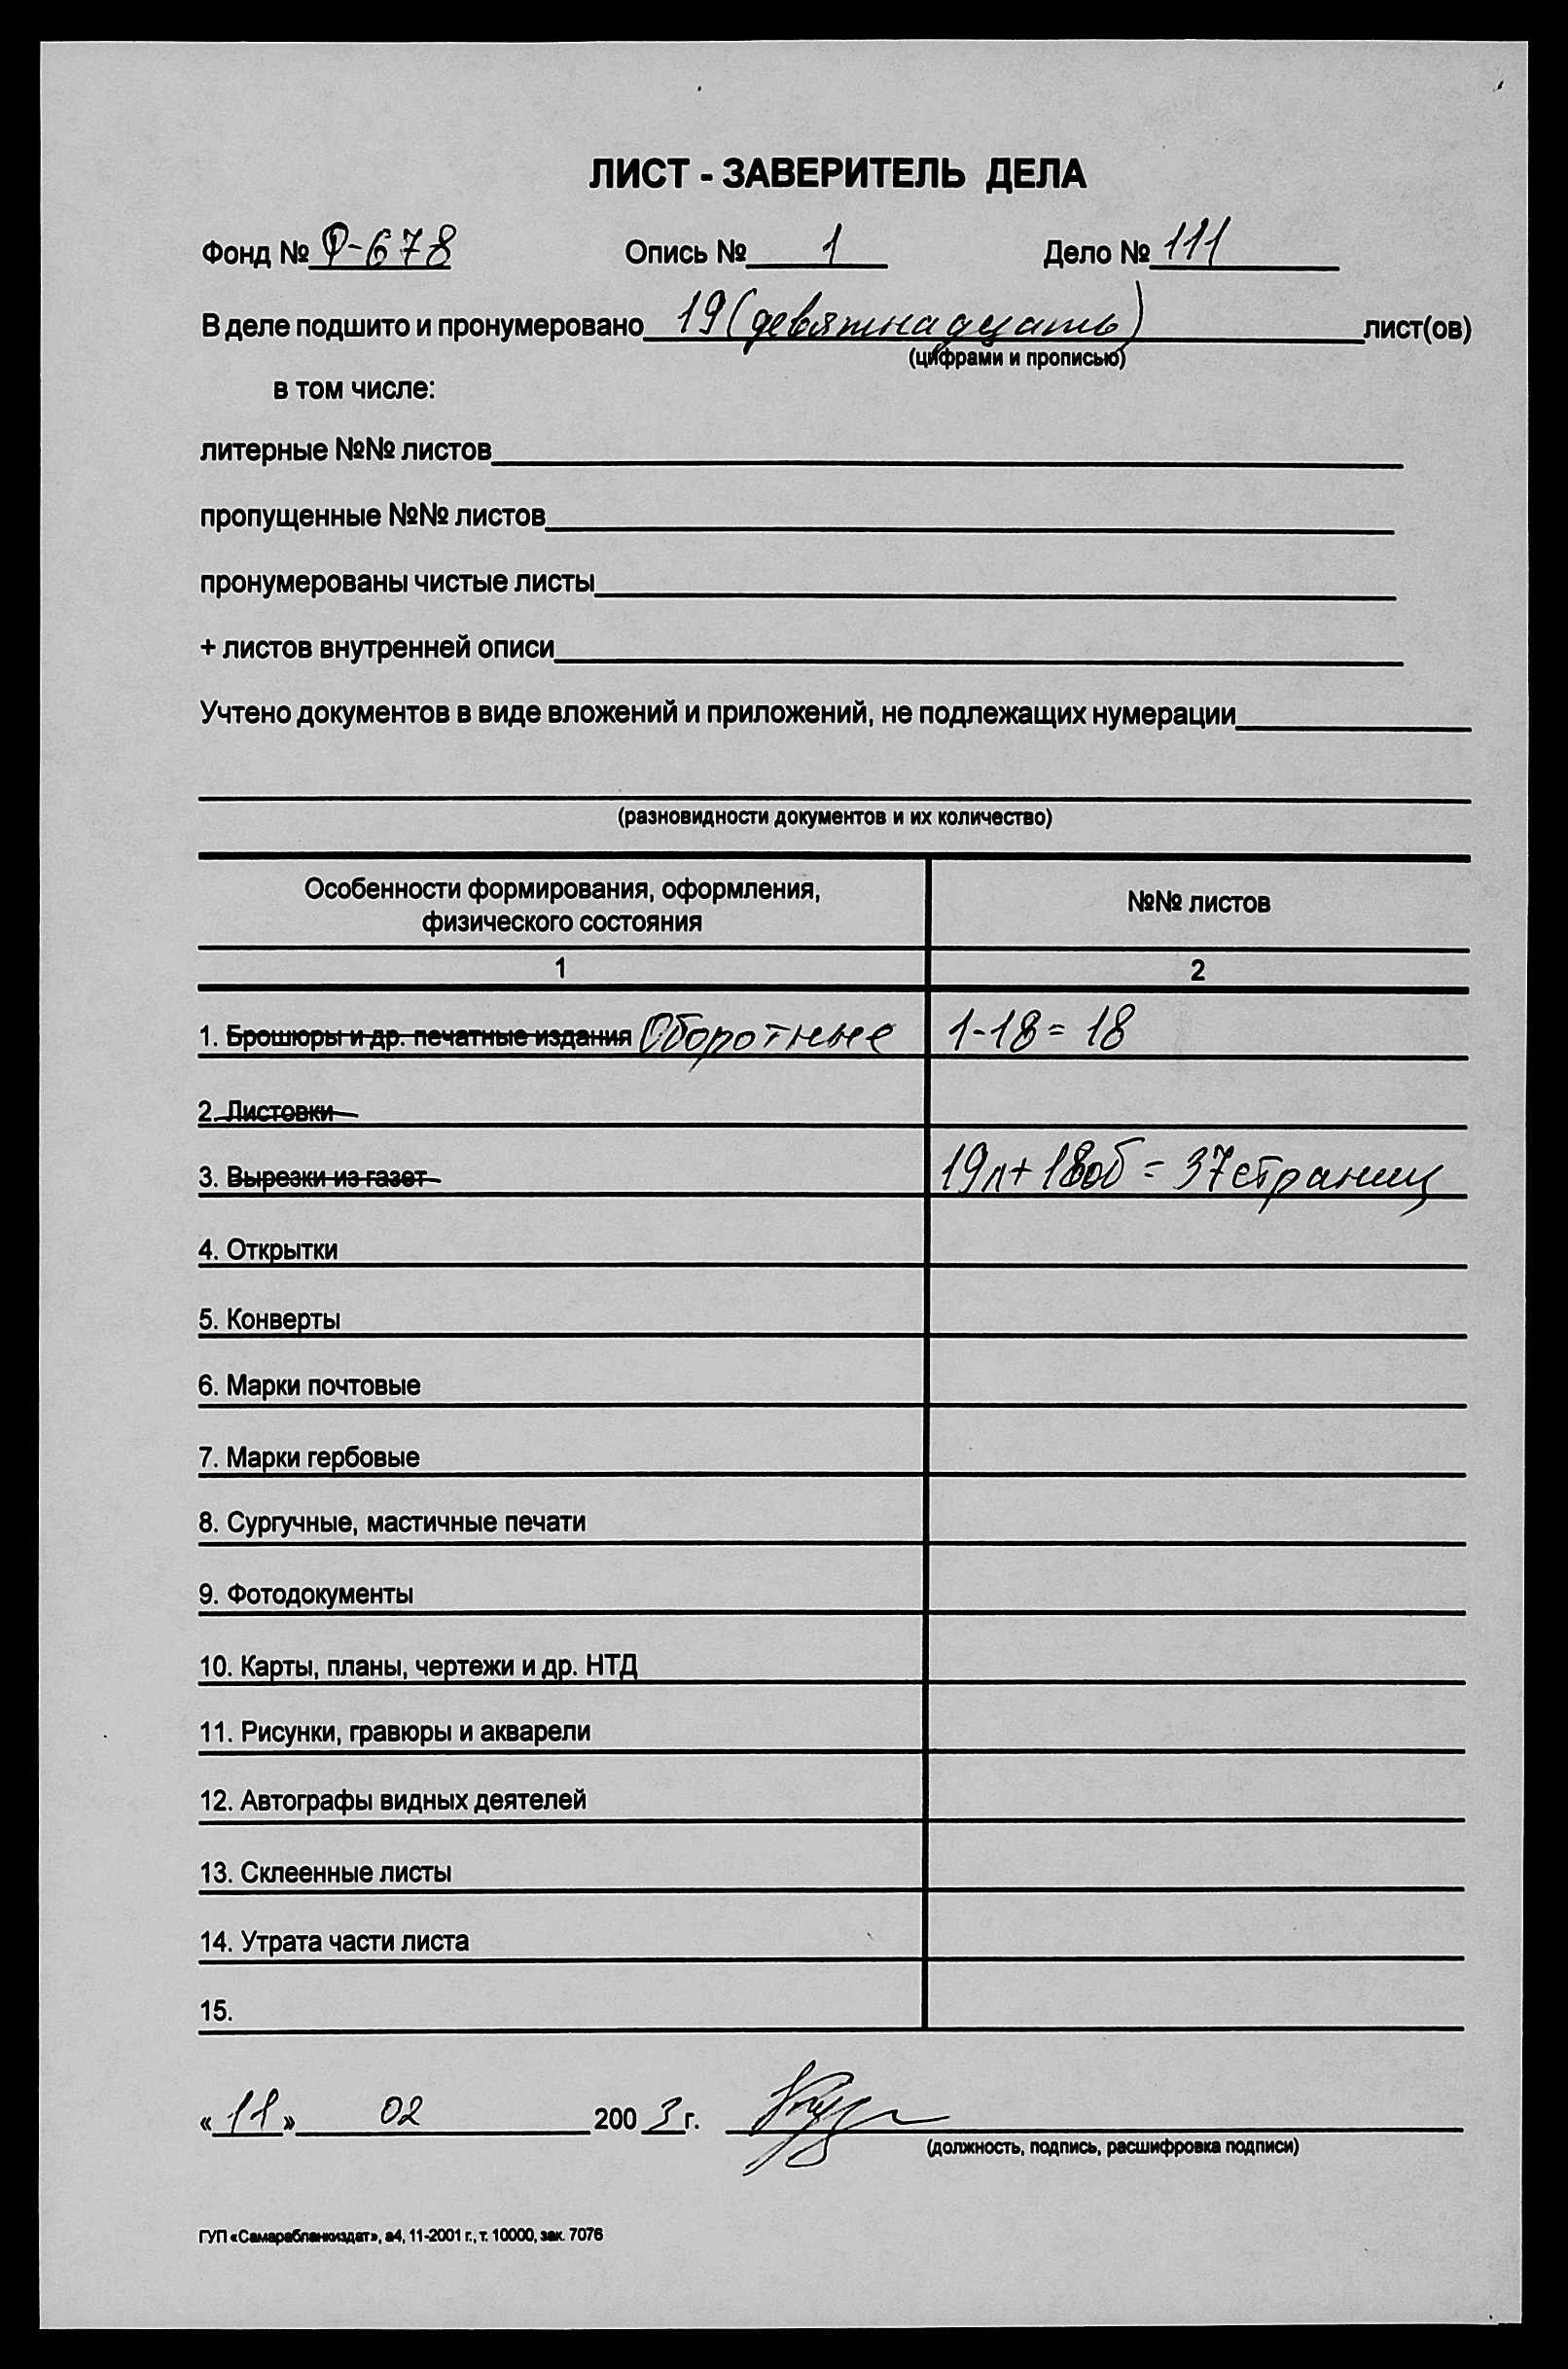 ЛИСТ - ЗАВЕРИТЕЛЬ ДЕЛА
Фонд № Р-678 Опись № 1 Дело № 111
В деле подшито и пронумеровано 19 (девятнадцать) лист(ов)
(цифрами и прописью)
в том числе:
литерные №№ листов
пропущенные №№ листов
пронумерованы чистые листы
+ листов внутренней описи
Учтено документов в виде вложений и приложений, не подлежащих нумерации
(разновидности документов и их количество)
Особенности формирования, оформления,
физического состояния
№№ листов
1 2
1. Брошюры и др. печатные издания Оборотные 1-18 = 18
2. Листовки
3. Вырезки из газет 19л + 18об = 37 страниц
4. Открытки
5. Конверты
6. Марки почтовые
7. Марки гербовые
8. Сургучные, мастичные печати
9. Фотодокументы
10. Карты, планы, чертежи и др. НТД
11. Рисунки, гравюры и акварели
12. Автографы видных деятелей
13. Склеенные листы
14. Утрата части листа
15.
« 11 » 02 2003 г.
(должность, подпись, расшифровка подписи)
ГУП «Самарабланкиздат», а4, 11-2001 г., т. 10000, зак. 7076